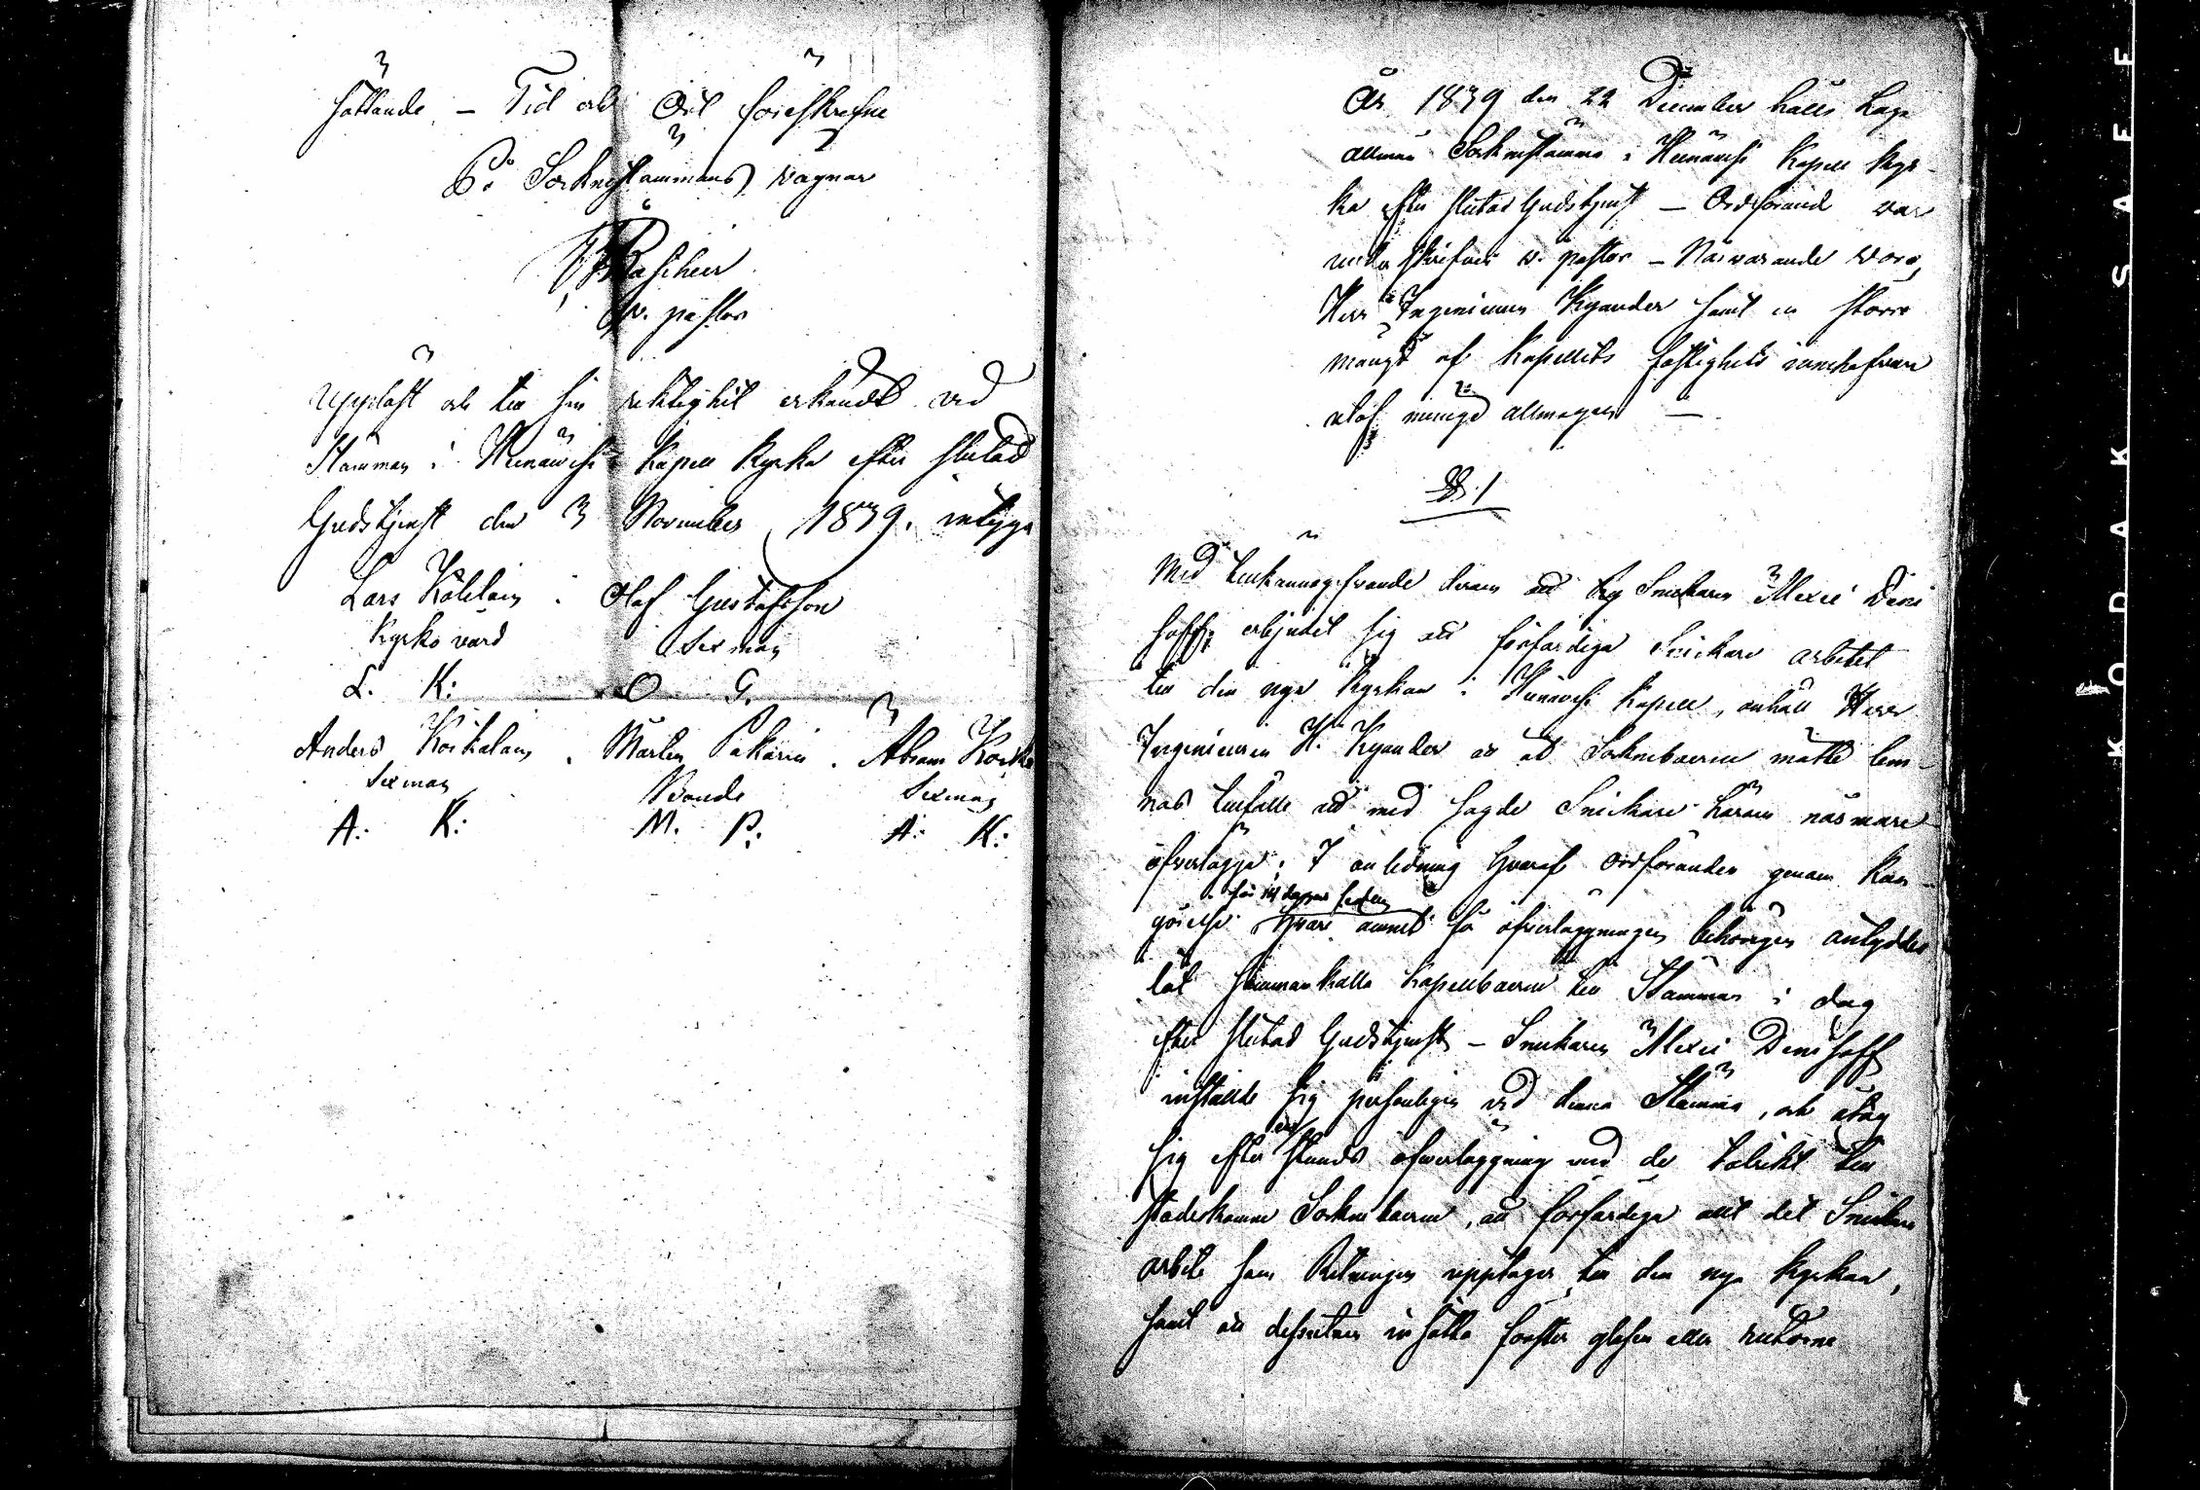 hållande. – Tid och Ort föreskrefne
På Socknestämmans vägnar
Bascheer
v. pastor
Uppläst och till sin riktighet erkändt vid
Stämman i Heinäwesi Kapell Kyrka efter slutad
Gudstjenst den 3 November 1839. intyga
Lars Kölelain . Olof Gustafsson
Kyrko värd Sexman
L. K: O G.
Anders Koikalain . Mårten Pakarin . Abram Koik
Sexman Bonde Sexman
A: K: M. P: A: K:
År 1839 den 22 December hölls Laga
allmän Socknestämma i Heinäwesi Kapell Kyr-
ka efter slutad Gudstjenst – Ordförande var
undertecknade v. pastor – Närvarande woro,
Herr Ingenieuren Kyander samt en större
mängd af Kapellets fastighets innehafvare
utaf menige allmogen –
§. 1
Med tillkännagifvande derom att Snickaren Alexei Deni
soff, erbjudit sig att förfärdiga Snickare arbetet
till den nya Kyrkan i Heinäwesi Kapell, anhöll Herr
Ingenieuren H. Kyander at Socknéboerne måtte lem-
nas tillfälle att med sagde Snickare härom närmare
öfverlägga; I anledning hvaraf Ordföranden genom kun-
för 14 dagar sedan
görelse hvari ämnet för öfverläggningen behörigen antyddes
låt sammankalla Kapellboerne till Stämman i dag
efter slutad Gudstjenst – Snickaren Alexei Denisoff
inställde sig personligen vid denna Stämma, och åtog
sig efter stunds öfverläggning med de talrikt till
städeskomne Socknéboerne, att förfärdiga allt det Snickare
arbete som Ritningen upptager till den nya Kyrkan,
samt att dessutom insätta fönster glasen eller rutorne
KODAK SAFE